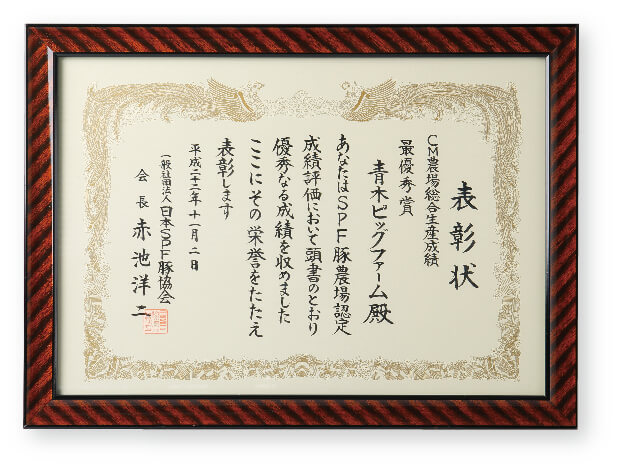 表彰状
CM農場総合生産成績
最優秀賞
青木ピッグファーム殿
あなたはSPF豚農場認定
成績評価において頭書のとおり
優秀なる成績を収めました
ここにその栄誉をたたえ
表彰します
平成二十二年十一月二日
一般社団法人日本SPF豚協会
会長 赤池洋二